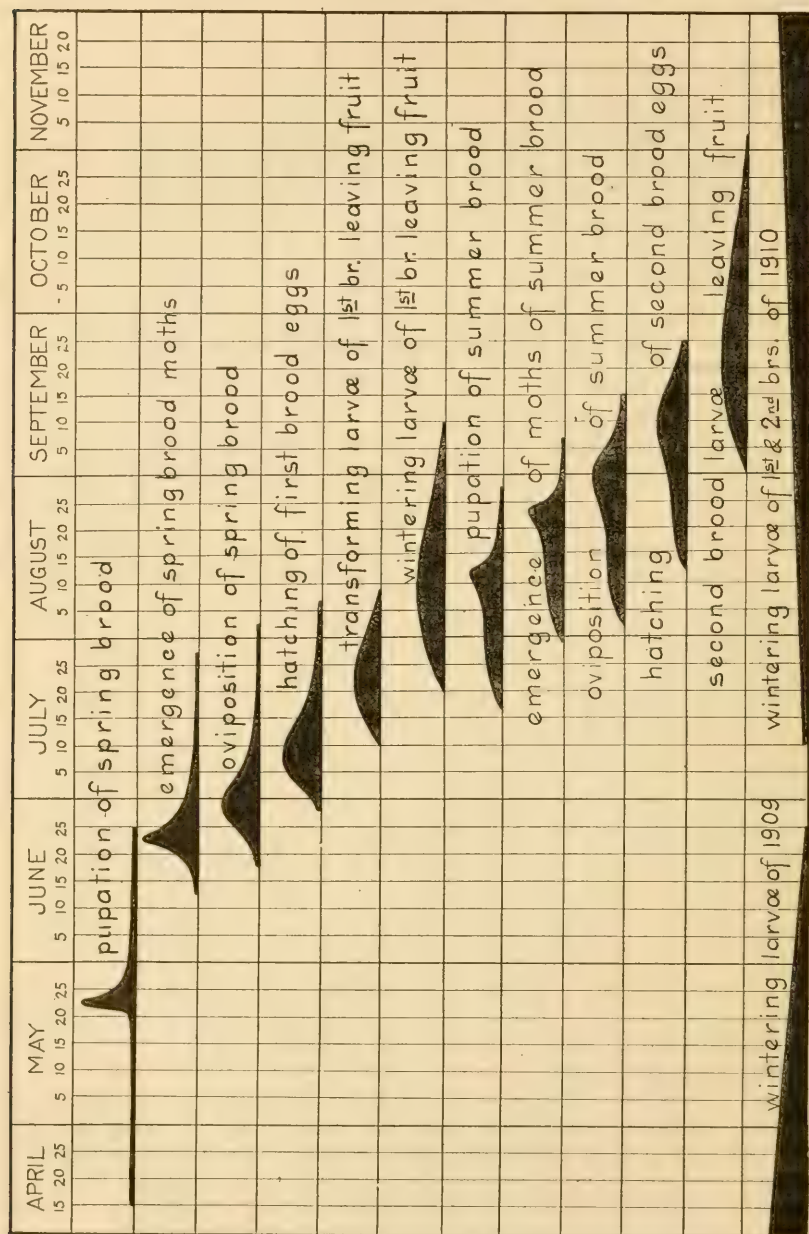 APRIL MAY JUNE JULY AUGUST SEPTEMBER OCTOBER NOVEMBER
15 20 25 5 10 15 20 25 5 10 15 20 25 5 10 15 20 25 5 10 15 20 25 5 10 15 20 25 - 5 10 15 20 25 5 10 15 20
pupation of spring brood
emergence of spring brood moths
oviposition of spring brood
hatching of first brood eggs
transforming larvæ of 1st br. leaving fruit
wintering larvæ of 1st br. leaving fruit
pupation of summer brood
emergence of moths of summer brood
oviposition of summer brood
hatching of second brood eggs
second brood larvæ leaving fruit
wintering larvæ of 1909 wintering larvæ of 1st & 2nd brs. of 1910